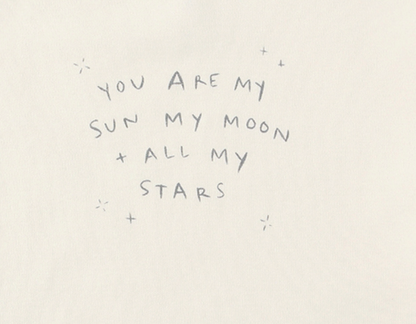 YOU ARE MY
SUN MY MOON
+ ALL MY
STARS